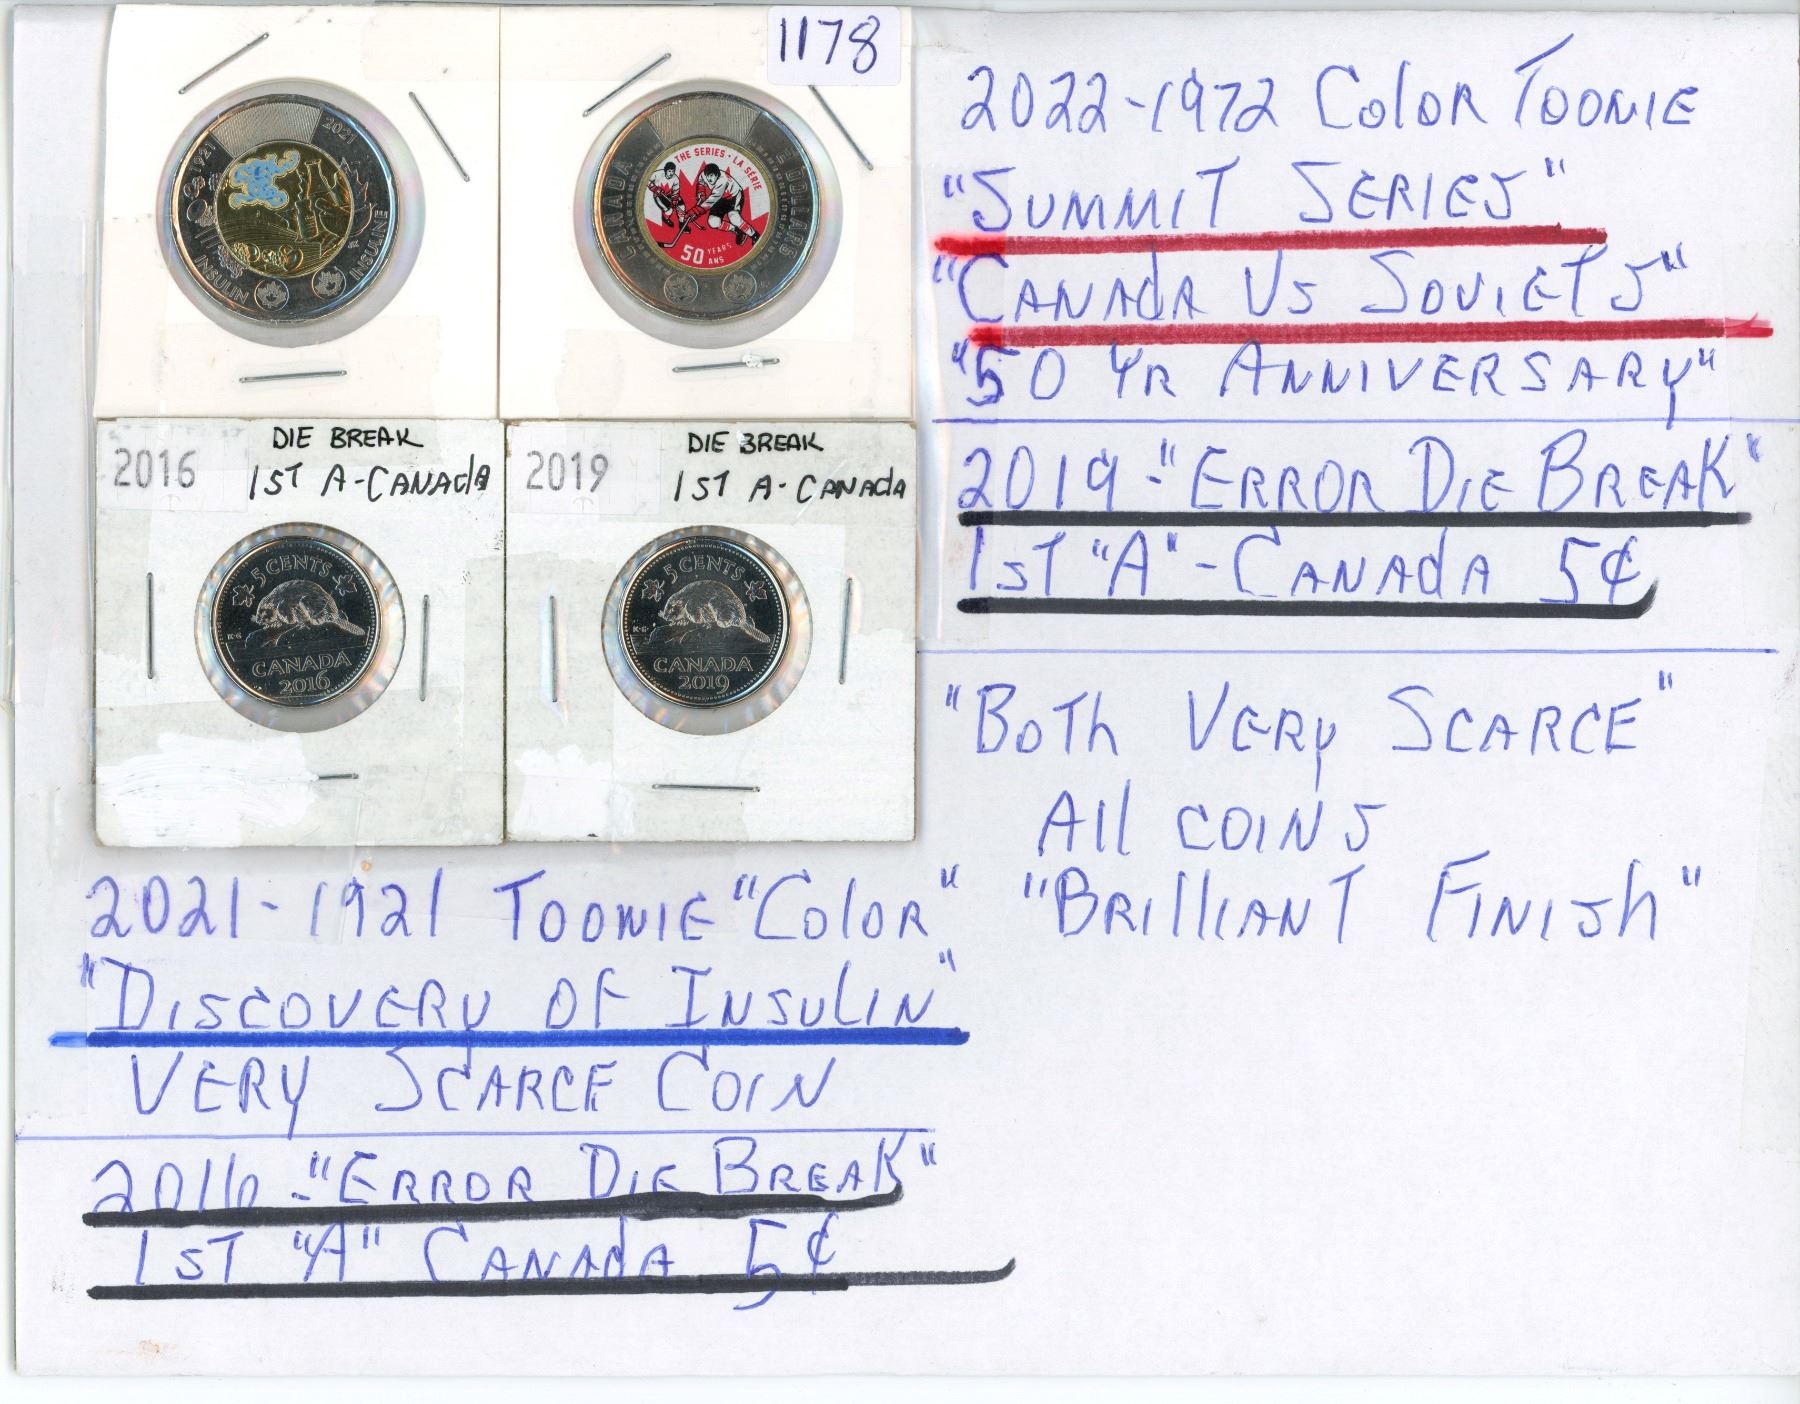 1178
1921
2021
INSULIN
INSULINE
CANADA
2 DOLLARS
THE SERIES · LA SÉRIE
50 YEARS
ANS
DIE BREAK
2016 1ST A-CANAdA
5 CENTS
K·G
CANADA
2016
DIE BREAK
2019 1ST A-CANAdA
5 CENTS
K·G
CANADA
2019
2022-1972 ColoR TOONIE
"SUMMIT SERIES"
"CANAdA VS SOVIETS"
"50 YR ANNIVERSARY"
2019-"ERROR DIE BREAK"
1ST "A"-CANAdA 5¢
"BoTh VERY SCARCE"
All COINS
"BRIllIANT FINISh"
2021-1921 TOONIE "ColoR"
"DISCOVERY OF INSULIN"
VERY SCARCE COIN
2016-"ERROR DIE BREAK"
1ST "A" CANAdA 5¢